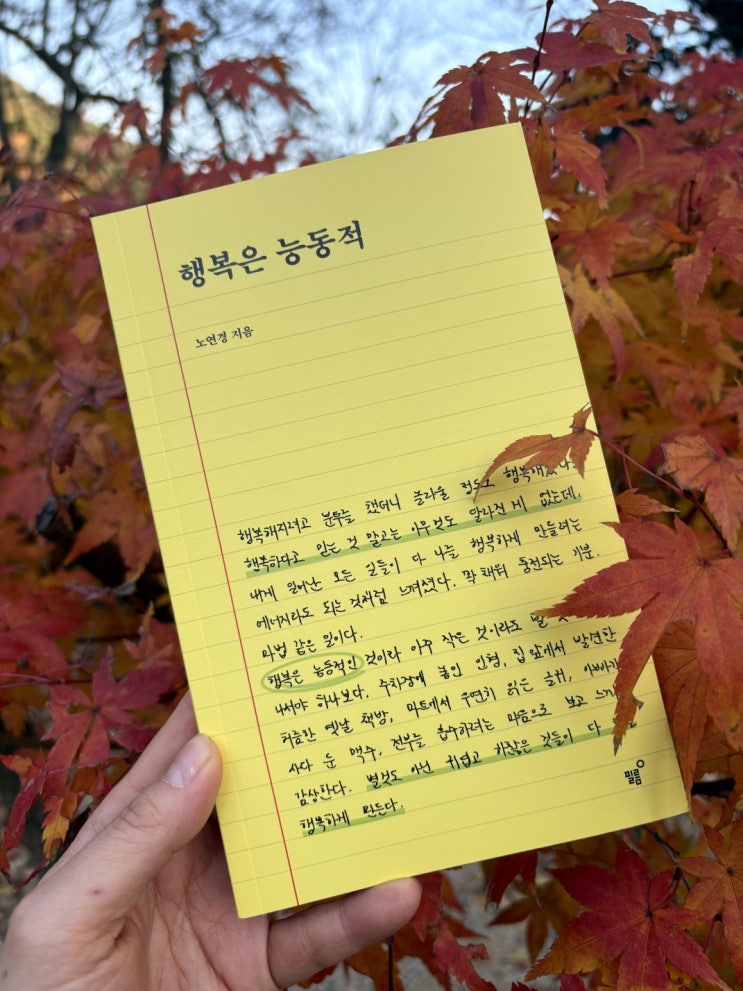 행복은 능동적
노연경 지음
행복해지려고 분투를 했더니 놀라울 정도로 행복해졌다.
행복하다고 믿는 것 말고는 아무것도 달라진 게 없는데,
내게 일어난 모든 일들이 다 나를 행복하게 만들려는
에너지라도 되는 것처럼 느껴졌다. 꽉 채워 충전되는 기분.
마법 같은 일이다.
행복은 능동적인 것이라 아주 작은 것이라도
나서야 하나보다. 주차장에 놓인 인형, 집 앞에서 발견한
허름한 옛날 책방, 마트에서 우연히 읽은 글귀, 아빠가
사다 둔 맥주, 전부를 흡수하려는 마음으로 보고
감상한다. 별것도 아닌 귀엽고 하찮은 것들이 다
행복하게 만든다.
필름